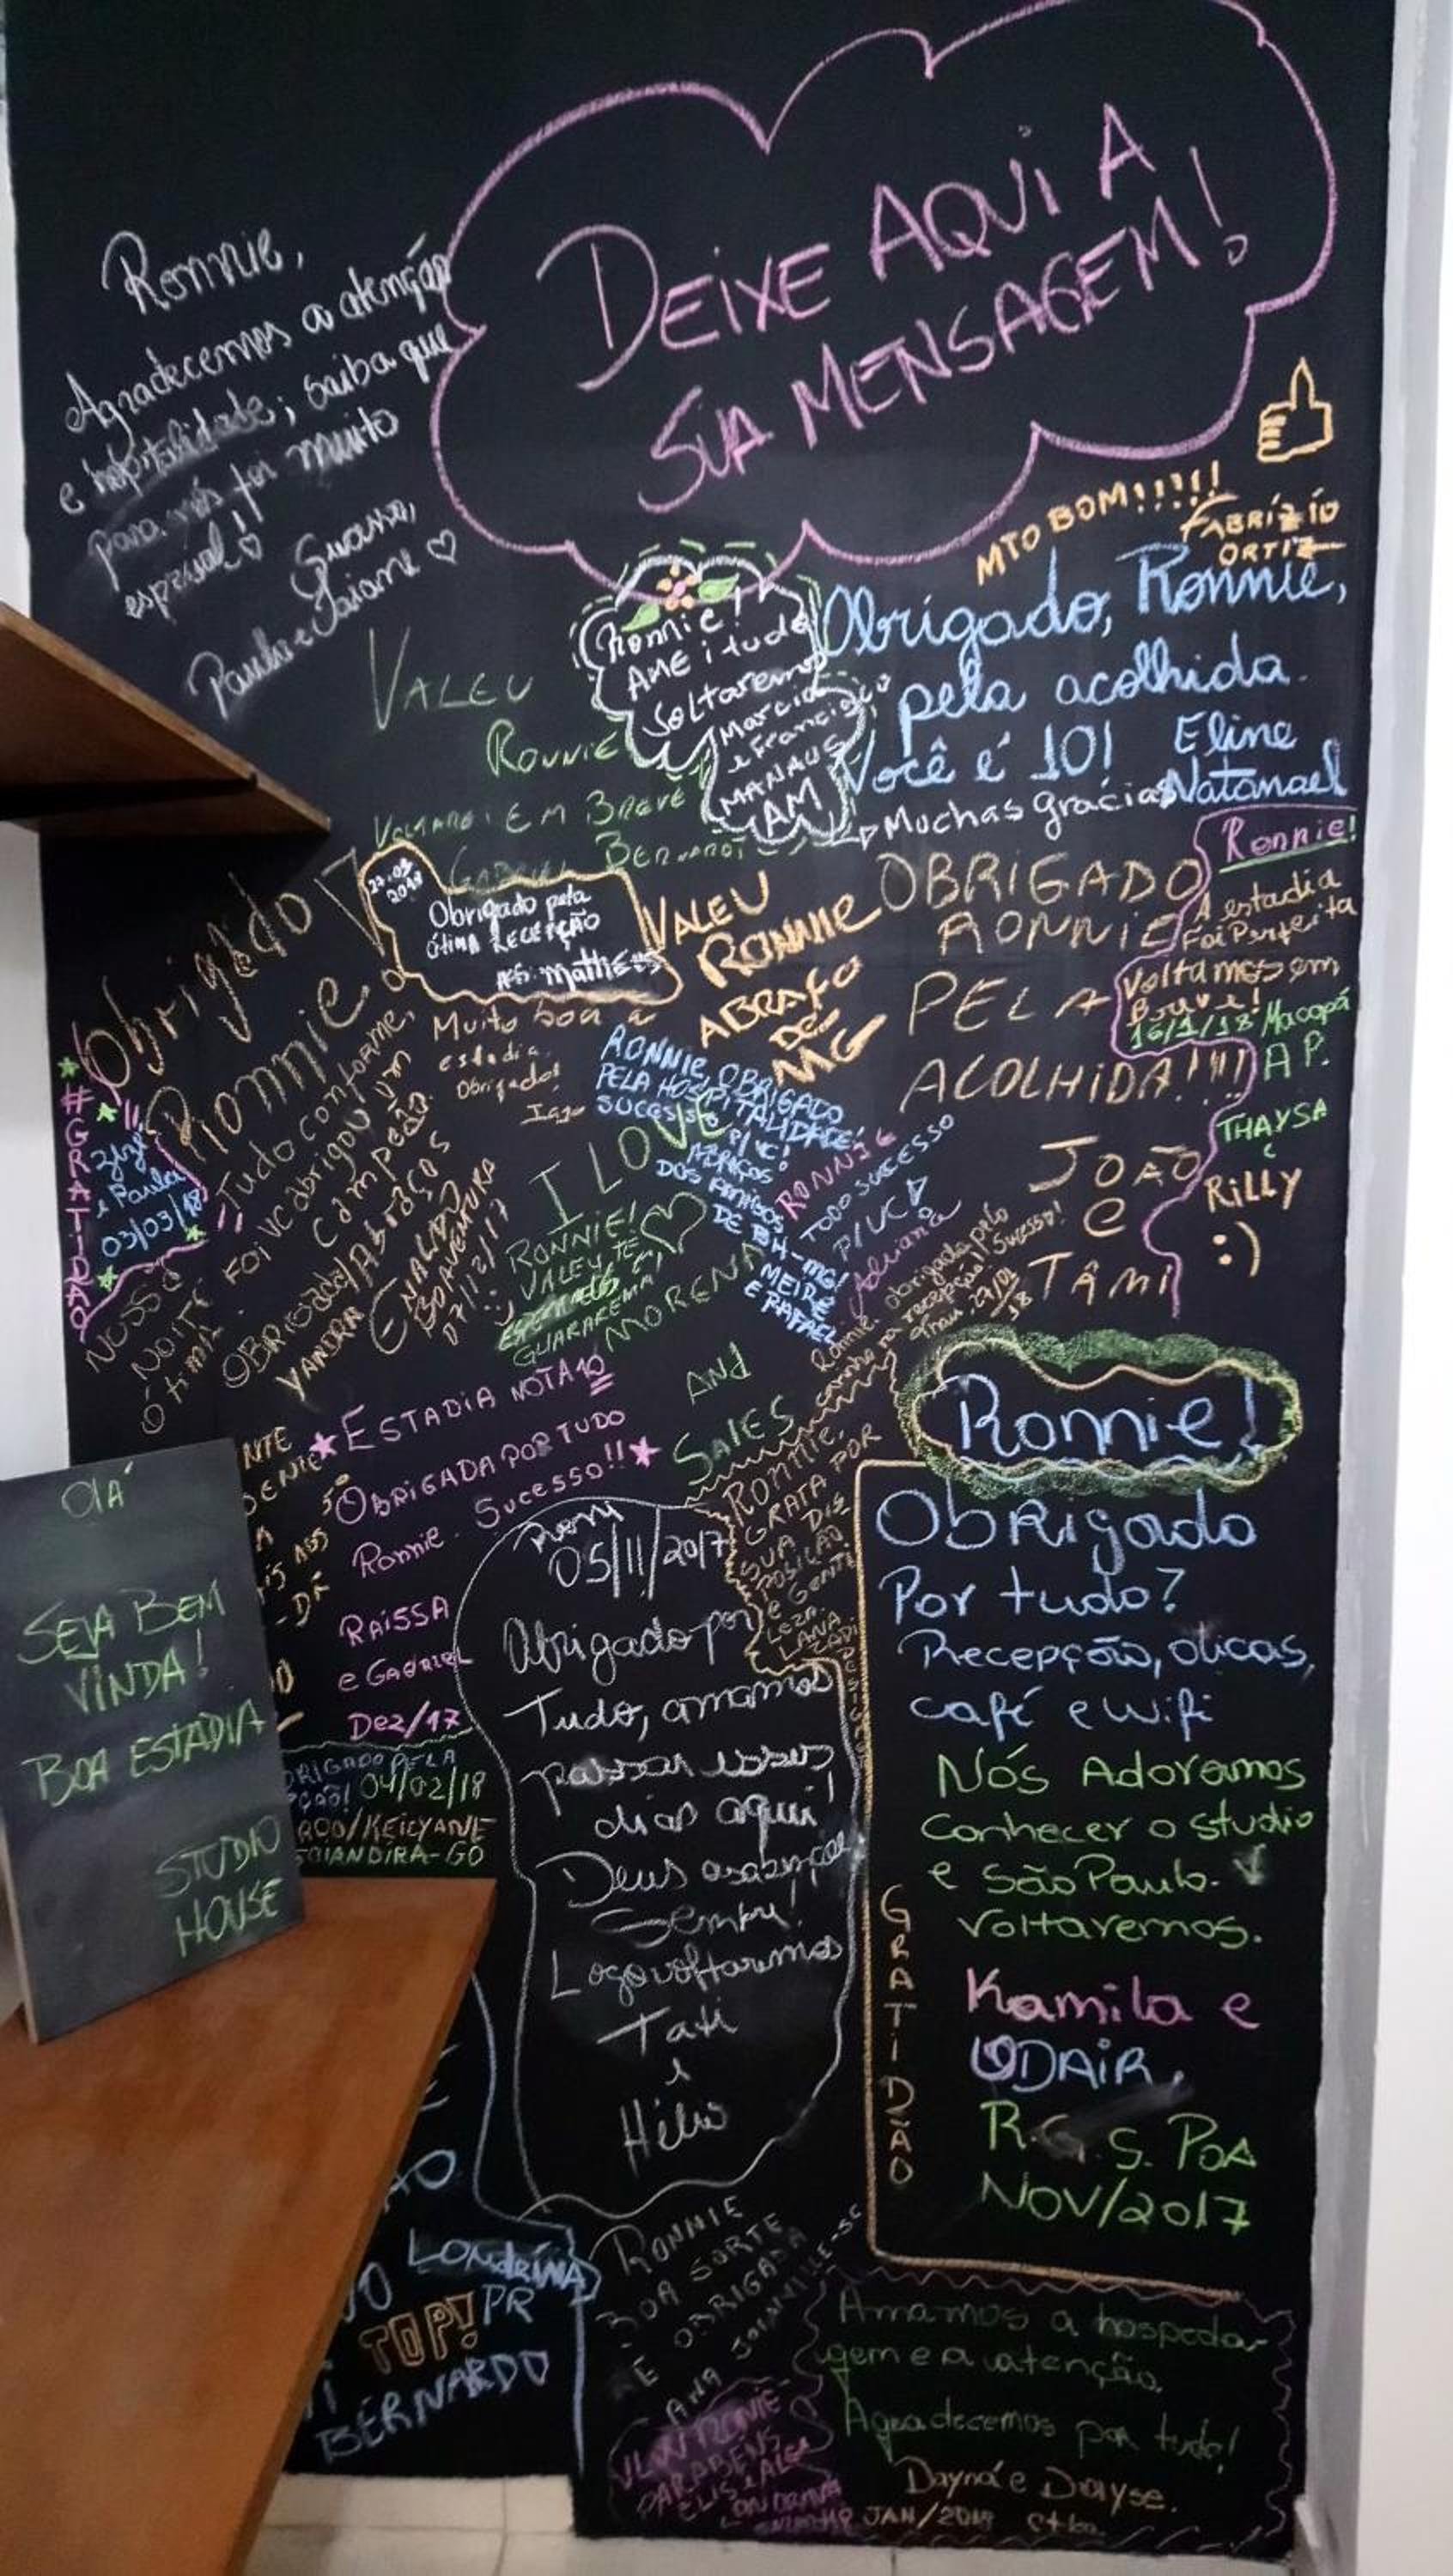 DEIXE AQUI A
SUA MENSAGEM!
Ronnie,
Agradecemos a atenção
e hospitalidade; saiba que
para nós foi muito
especial!
Suasso,
Paulo e Taiane ♡
MTO BOM!!!!!
FABRÍZIO
ORTIZ
Ronnie!
AMEi tudo
Soltaremos
Marcia
e Francisco
MANAUS
AM
Obrigado, Ronnie,
pela acolhida.
Você é 10!
Eline
Natanael
Muchas gracias
VALEU
RONNIE
VOLTAREI EM BREVE
GABRIEL BERNARDI
27.02
2018
Obrigado pela
ótima RECEPÇÃO
ASS: Matheus
VALEU
RONNIE
ABRAÇO
DE
MG
OBRIGADO
RONNIE
PELA
ACOLHIDA!!!!
JOÃO
e
TÂMI
Ronnie!
A estadia
Foi Perfeita
Voltamos em
Breve!
16/1/18 Macapá
AP.
THAYSA
e
RiLLY
:)
Obrigado
Ronnie.
Tudo conforme,
FOI VC abrigou um
campeão.
OBRIGADA/Abraços
YANDRA
ENIALDO
BOAVENTURA
07/12/17
#GRATIDÃO
Zizi
e Paula
03/03/18
NOSSA
NOITE
Ótima
Muito boa a
estadia.
Obrigado!
Iago
RONNIE, OBRIGADO
PELA HOSPITALIDADE!
SUCESSO P/ VC!
ABRAÇOS!
DOS AMIGOS
DE BH-MG!
MEIRE
E RAFAEL
I LOVE
RONNIE!
VALEU, TE
ESPERAMOS EM
GUARAREMA!
MORENA
AND
SALES
RONNIE
TODO SUCESSO
P/ VC!
Adriana
Ronnie, obrigada pelo
carinho na recepção!! Sucesso!
29/01
18
★ESTADIA NOTA 10
OBRIGADA POR TUDO
Ronnie. Sucesso!!★
RAÍSSA
e GABRIEL
Dez/17
RONNIE,
GRATA POR
SUA DIS
POSIÇÃO
e GENTI
LEZA.
LANA
Ronnie!
Obrigado
Por tudo?
Recepção, dicas,
café e Wifi
Nós Adoramos
Conhecer o studio
e São Paulo.
Voltaremos.
Kamila e
ODAIR,
R.G.S. POA
NOV/2017
GRATIDÃO
Roni
05/11/2017
Obrigado por
Tudo, amamos
passar esses
dias aqui!
Deus os abençoe
Sempre!
Logo voltaremos
Tati
e
Hélio
OLÁ
SEJA BEM
VINDA!
BOA ESTADIA
STUDIO
HOUSE
RIGADO PELA
ÇÃO! 04/02/18
ROO/KEICYANE
GOIANDIRA-GO
LONDRINA
PR
TOP!
BERNARDO
RONNIE
BOA SORTE
E OBRIGADA
ANA JOINVILLE-SC
RONIE
PARABENS
Amamos a hospeda-
gem e a atenção.
Agradecemos por tudo!
Dayná e Dayse.
JAN/2018 Ctba.